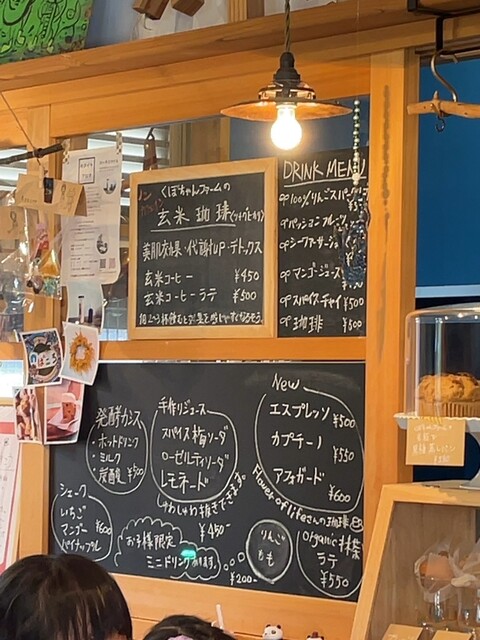 ノンカフェイン
くぼちゃんファームの
玄米珈琲
美肌効果・代謝up・デトックス
玄米コーヒー ¥450
玄米コーヒーラテ ¥500
DRINK MENU
100%りんごスパークリング
パッションフルーツ
シークワーサージュース
マンゴージュース
スパイスチャイ ¥500
珈琲 ¥500
発酵カシス
・ホットドリンク
・ミルク
・炭酸 ¥500
手作りジュース
スパイス梅ソーダ
ローゼルティソーダ
レモネード
しゅわしゅわ抜きできます。
¥450-
New
エスプレッソ ¥500
カプチーノ ¥550
アフォガード ¥600
Flower of lifeさんの珈琲
シェーク
いちご
マンゴー
パイナップル
¥600
お子様限定
ミニドリンクあります。
¥200-
りんご
もも
organic抹茶
ラテ
¥550